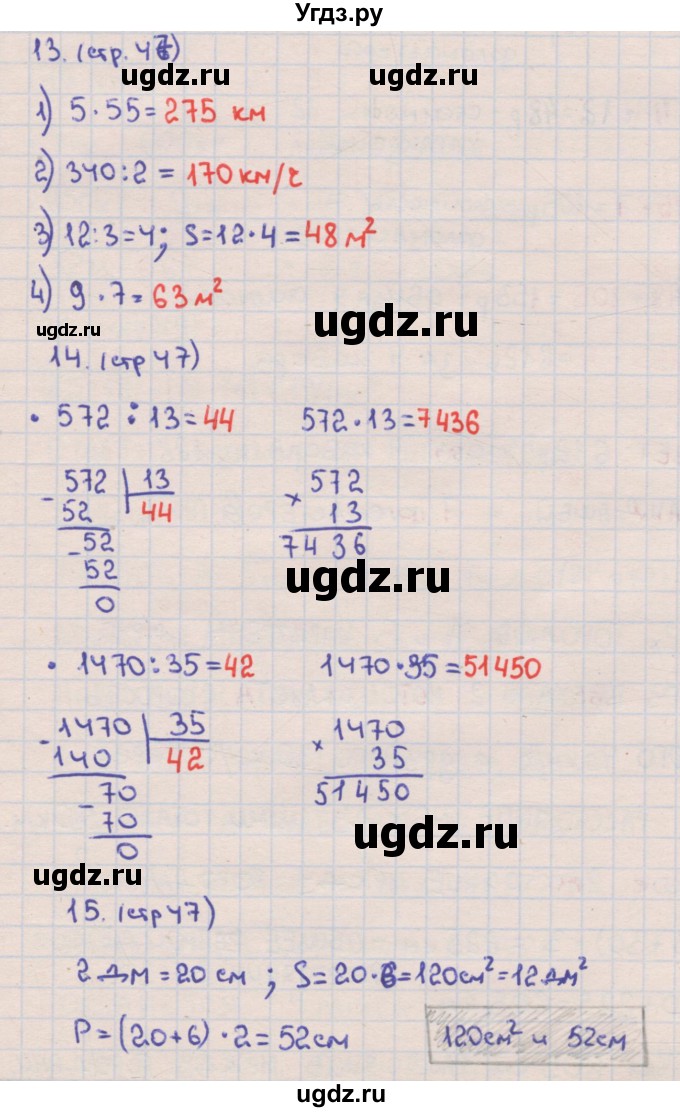 Угдз.ру
13. (стр. 47)
ugdz.ru ugdz.ru
1) 5·55=275 км
2) 340:2=170км/ч
3) 12:3=4; S=12·4=48м²
4) 9·7=63м²
ugdz.ru ugdz.ru
14. (стр 47)
• 572:13=44 572·13=7436
- 572 | 13
52 44
- 52
52
0
× 572
13
7436
ugdz.ru
• 1470:35=42 1470·35=51450
- 1470 | 35
140 42
- 70
70
0
× 1470
35
51450
ugdz.ru
ugdz.ru
15. (стр 47)
2 дм=20 см; S=20·6=120см²=12дм²
P=(20+6)·2=52см
120см² и 52см
ugdz.ru